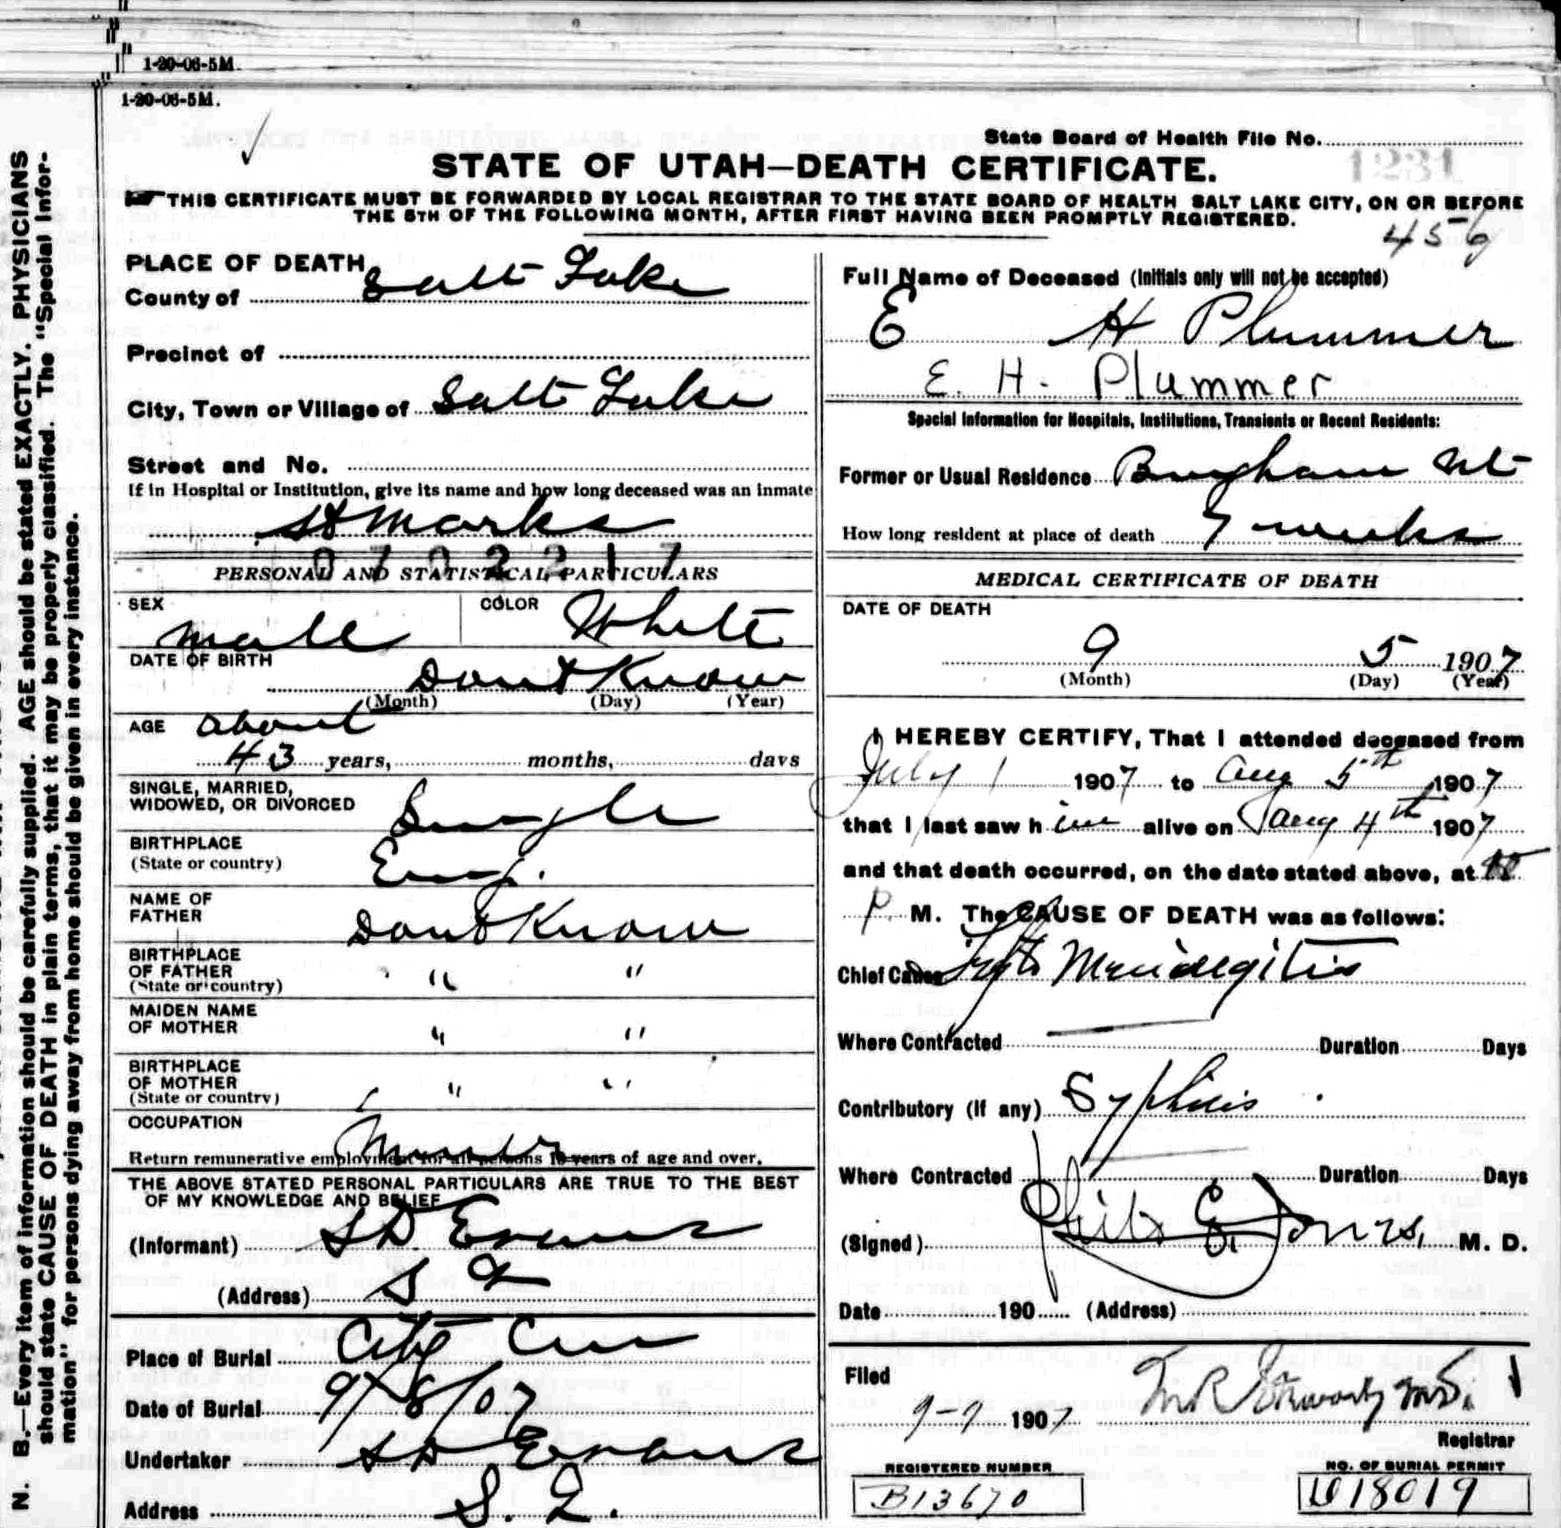 1-20-06-5M.
1-20-06-5M.
State Board of Health File No.
1231
STATE OF UTAH—DEATH CERTIFICATE.
THIS CERTIFICATE MUST BE FORWARDED BY LOCAL REGISTRAR TO THE STATE BOARD OF HEALTH SALT LAKE CITY, ON OR BEFORE
THE 5TH OF THE FOLLOWING MONTH, AFTER FIRST HAVING BEEN PROMPTLY REGISTERED.
456
N. B.—Every item of information should be carefully supplied. AGE should be stated EXACTLY. PHYSICIANS
should state CAUSE OF DEATH in plain terms, that it may be properly classified. The "Special Infor-
mation" for persons dying away from home should be given in every instance.
PLACE OF DEATH
County of Salt Lake
Precinct of
City, Town or Village of Salt Lake
Street and No.
If in Hospital or Institution, give its name and how long deceased was an inmate
St Marks
0702217
PERSONAL AND STATISTICAL PARTICULARS
SEX male COLOR White
DATE OF BIRTH Dont Know
(Month) (Day) (Year)
AGE about
43 years, months, days
SINGLE, MARRIED,
WIDOWED, OR DIVORCED Single
BIRTHPLACE
(State or country) Eng.
NAME OF
FATHER Dont Know
BIRTHPLACE
OF FATHER " "
(State or country)
MAIDEN NAME
OF MOTHER " "
BIRTHPLACE
OF MOTHER " "
(State or country)
OCCUPATION
Miner
Return remunerative employment for all persons 10 years of age and over.
THE ABOVE STATED PERSONAL PARTICULARS ARE TRUE TO THE BEST
OF MY KNOWLEDGE AND BELIEF
(Informant) S D Evans
(Address) S L
Place of Burial City Cem
Date of Burial 9/8/07
Undertaker S D Evans
Address S. L.
Full Name of Deceased (Initials only will not be accepted)
E H Plummer
E. H. Plummer
Special Information for Hospitals, Institutions, Transients or Recent Residents:
Former or Usual Residence Bingham Ut
How long resident at place of death 9 weeks
MEDICAL CERTIFICATE OF DEATH
DATE OF DEATH
9 5 1907
(Month) (Day) (Year)
I HEREBY CERTIFY, That I attended deceased from
July 1 1907 to Aug 5th 1907
that I last saw him alive on Aug 4th 1907
and that death occurred, on the date stated above, at
P. M. The CAUSE OF DEATH was as follows:
Chief Cause
Where Contracted Duration Days
Contributory (if any) Syphilis
Where Contracted Duration Days
(Signed) Jones, M. D.
Date 190 (Address)
Filed
9-7 1907 M.D.
Registrar
REGISTERED NUMBER
B13670
NO. OF BURIAL PERMIT
18019